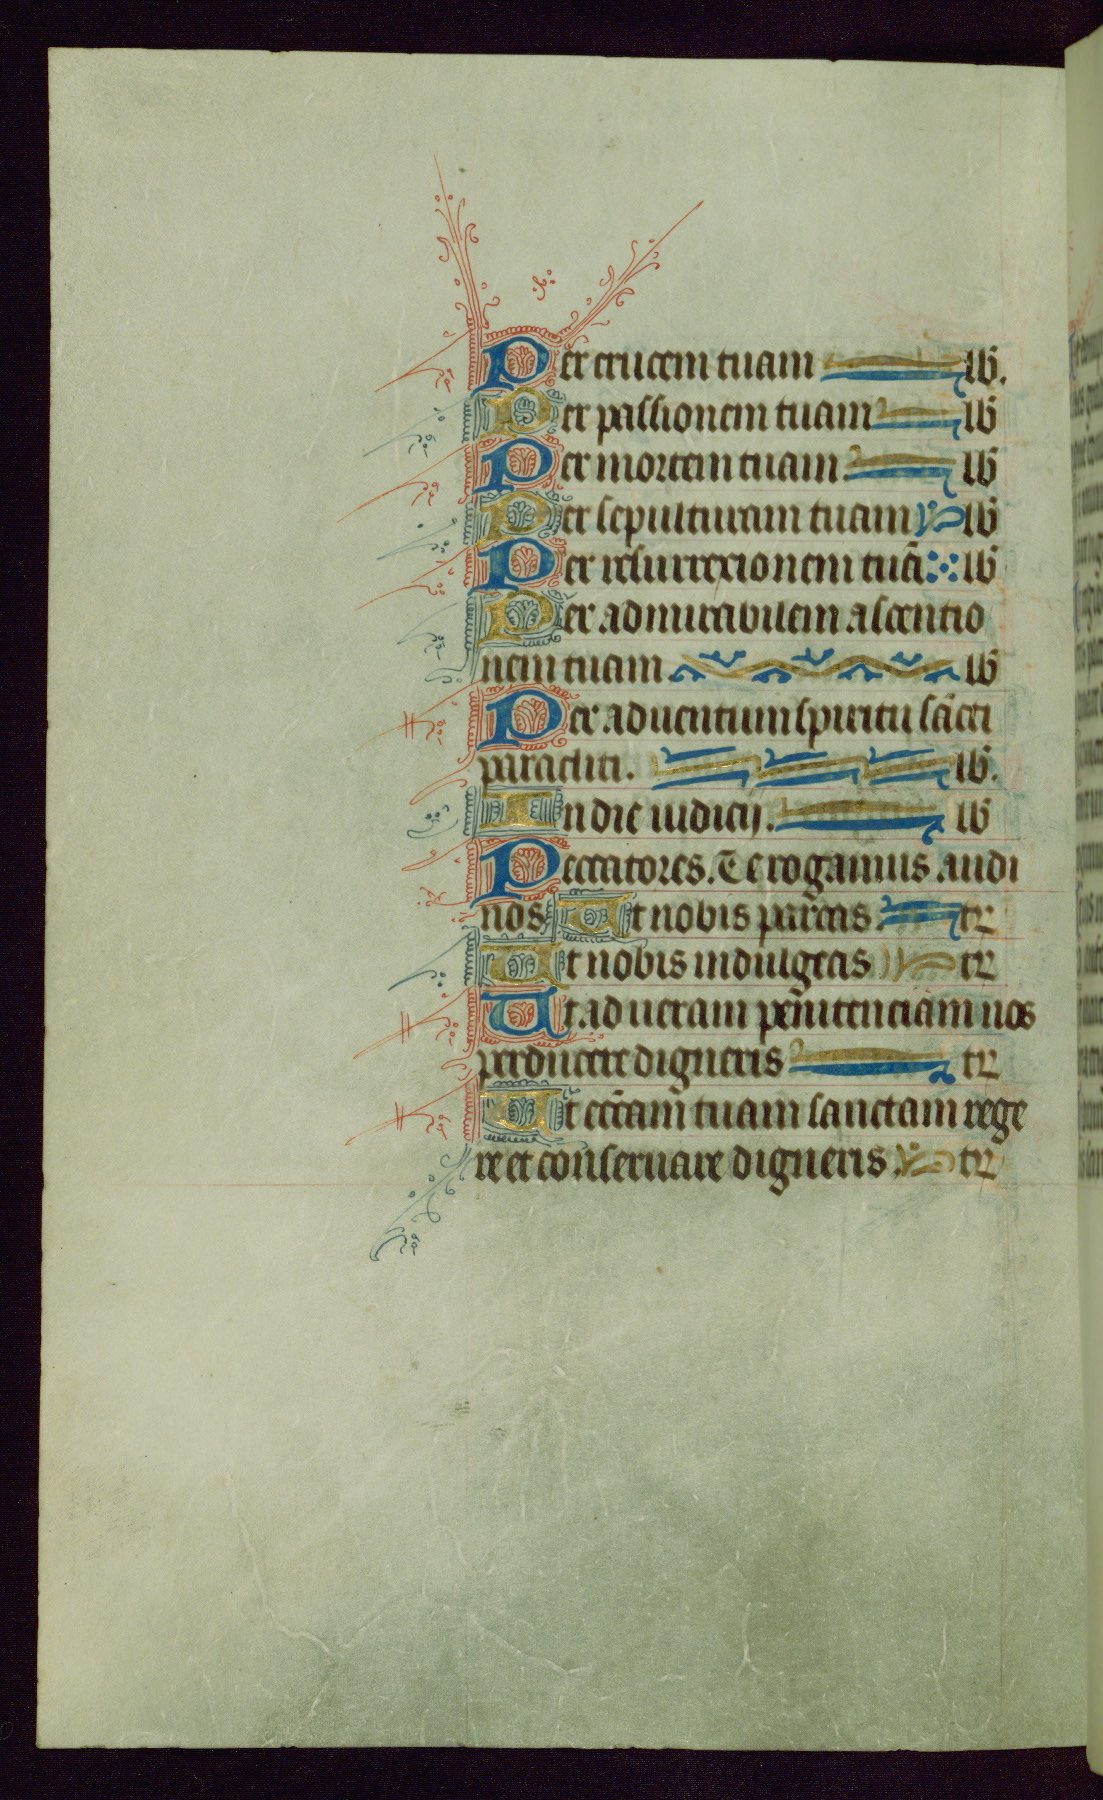 Per crucem tuam lb̄.
Per passionem tuam lb̄
Per mortem tuam lb̄
Per sepulturam tuam lb̄
Per resurrexionem tuā lb̄
Per admirabilem ascentio
nem tuam lb̄
Per aduentum spiritu sācti
paracliti. lb̄.
In die iudicij. lb̄
Peccatores. Te rogamus audi
nos Ut nobis parcas tr
Ut nobis indulgeas tr
Ut ad ueram penitenciam nos
perducere digneris tr
Ut eccām tuam sanctam rege
re et conseruare digneris. tr